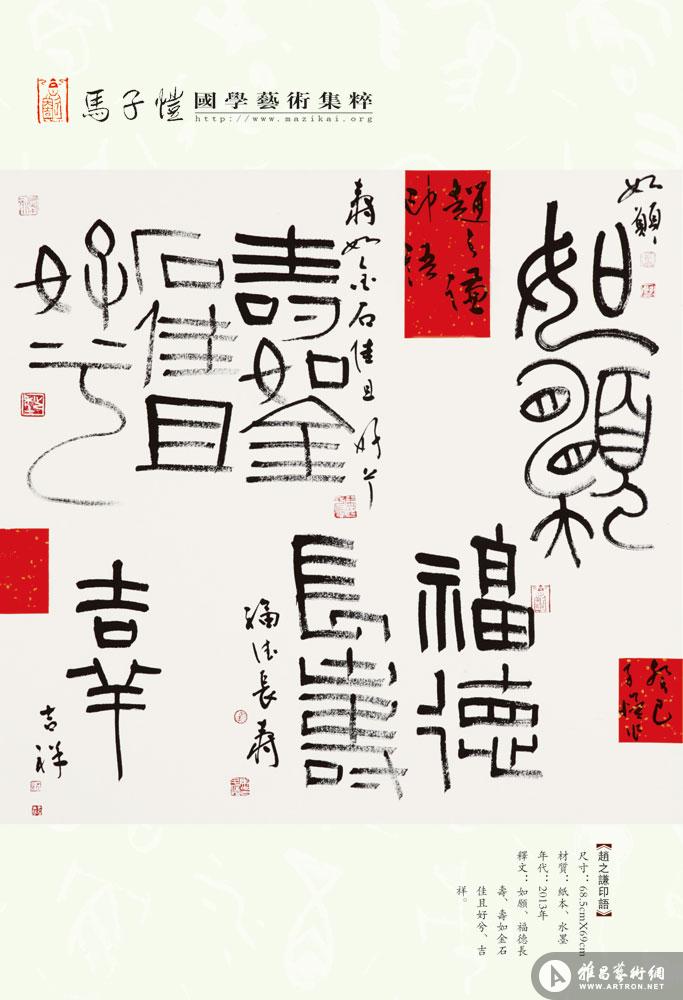 馬子愷
國學藝術集粹
http://www.mazikai.org
如願
如願
趙之謙
印語
壽如金石佳且好兮
壽如金
石佳且
好兮
福德
長壽
福德長壽
吉羊
吉祥
癸巳
子愷作
《趙之謙印語》
尺寸：68.5cmX69cm
材質：紙本、水墨
年代：2013年
釋文：如願、福德長
壽、壽如金石
佳且好兮、吉
祥。
雅昌藝術網
WWW.ARTRON.NET